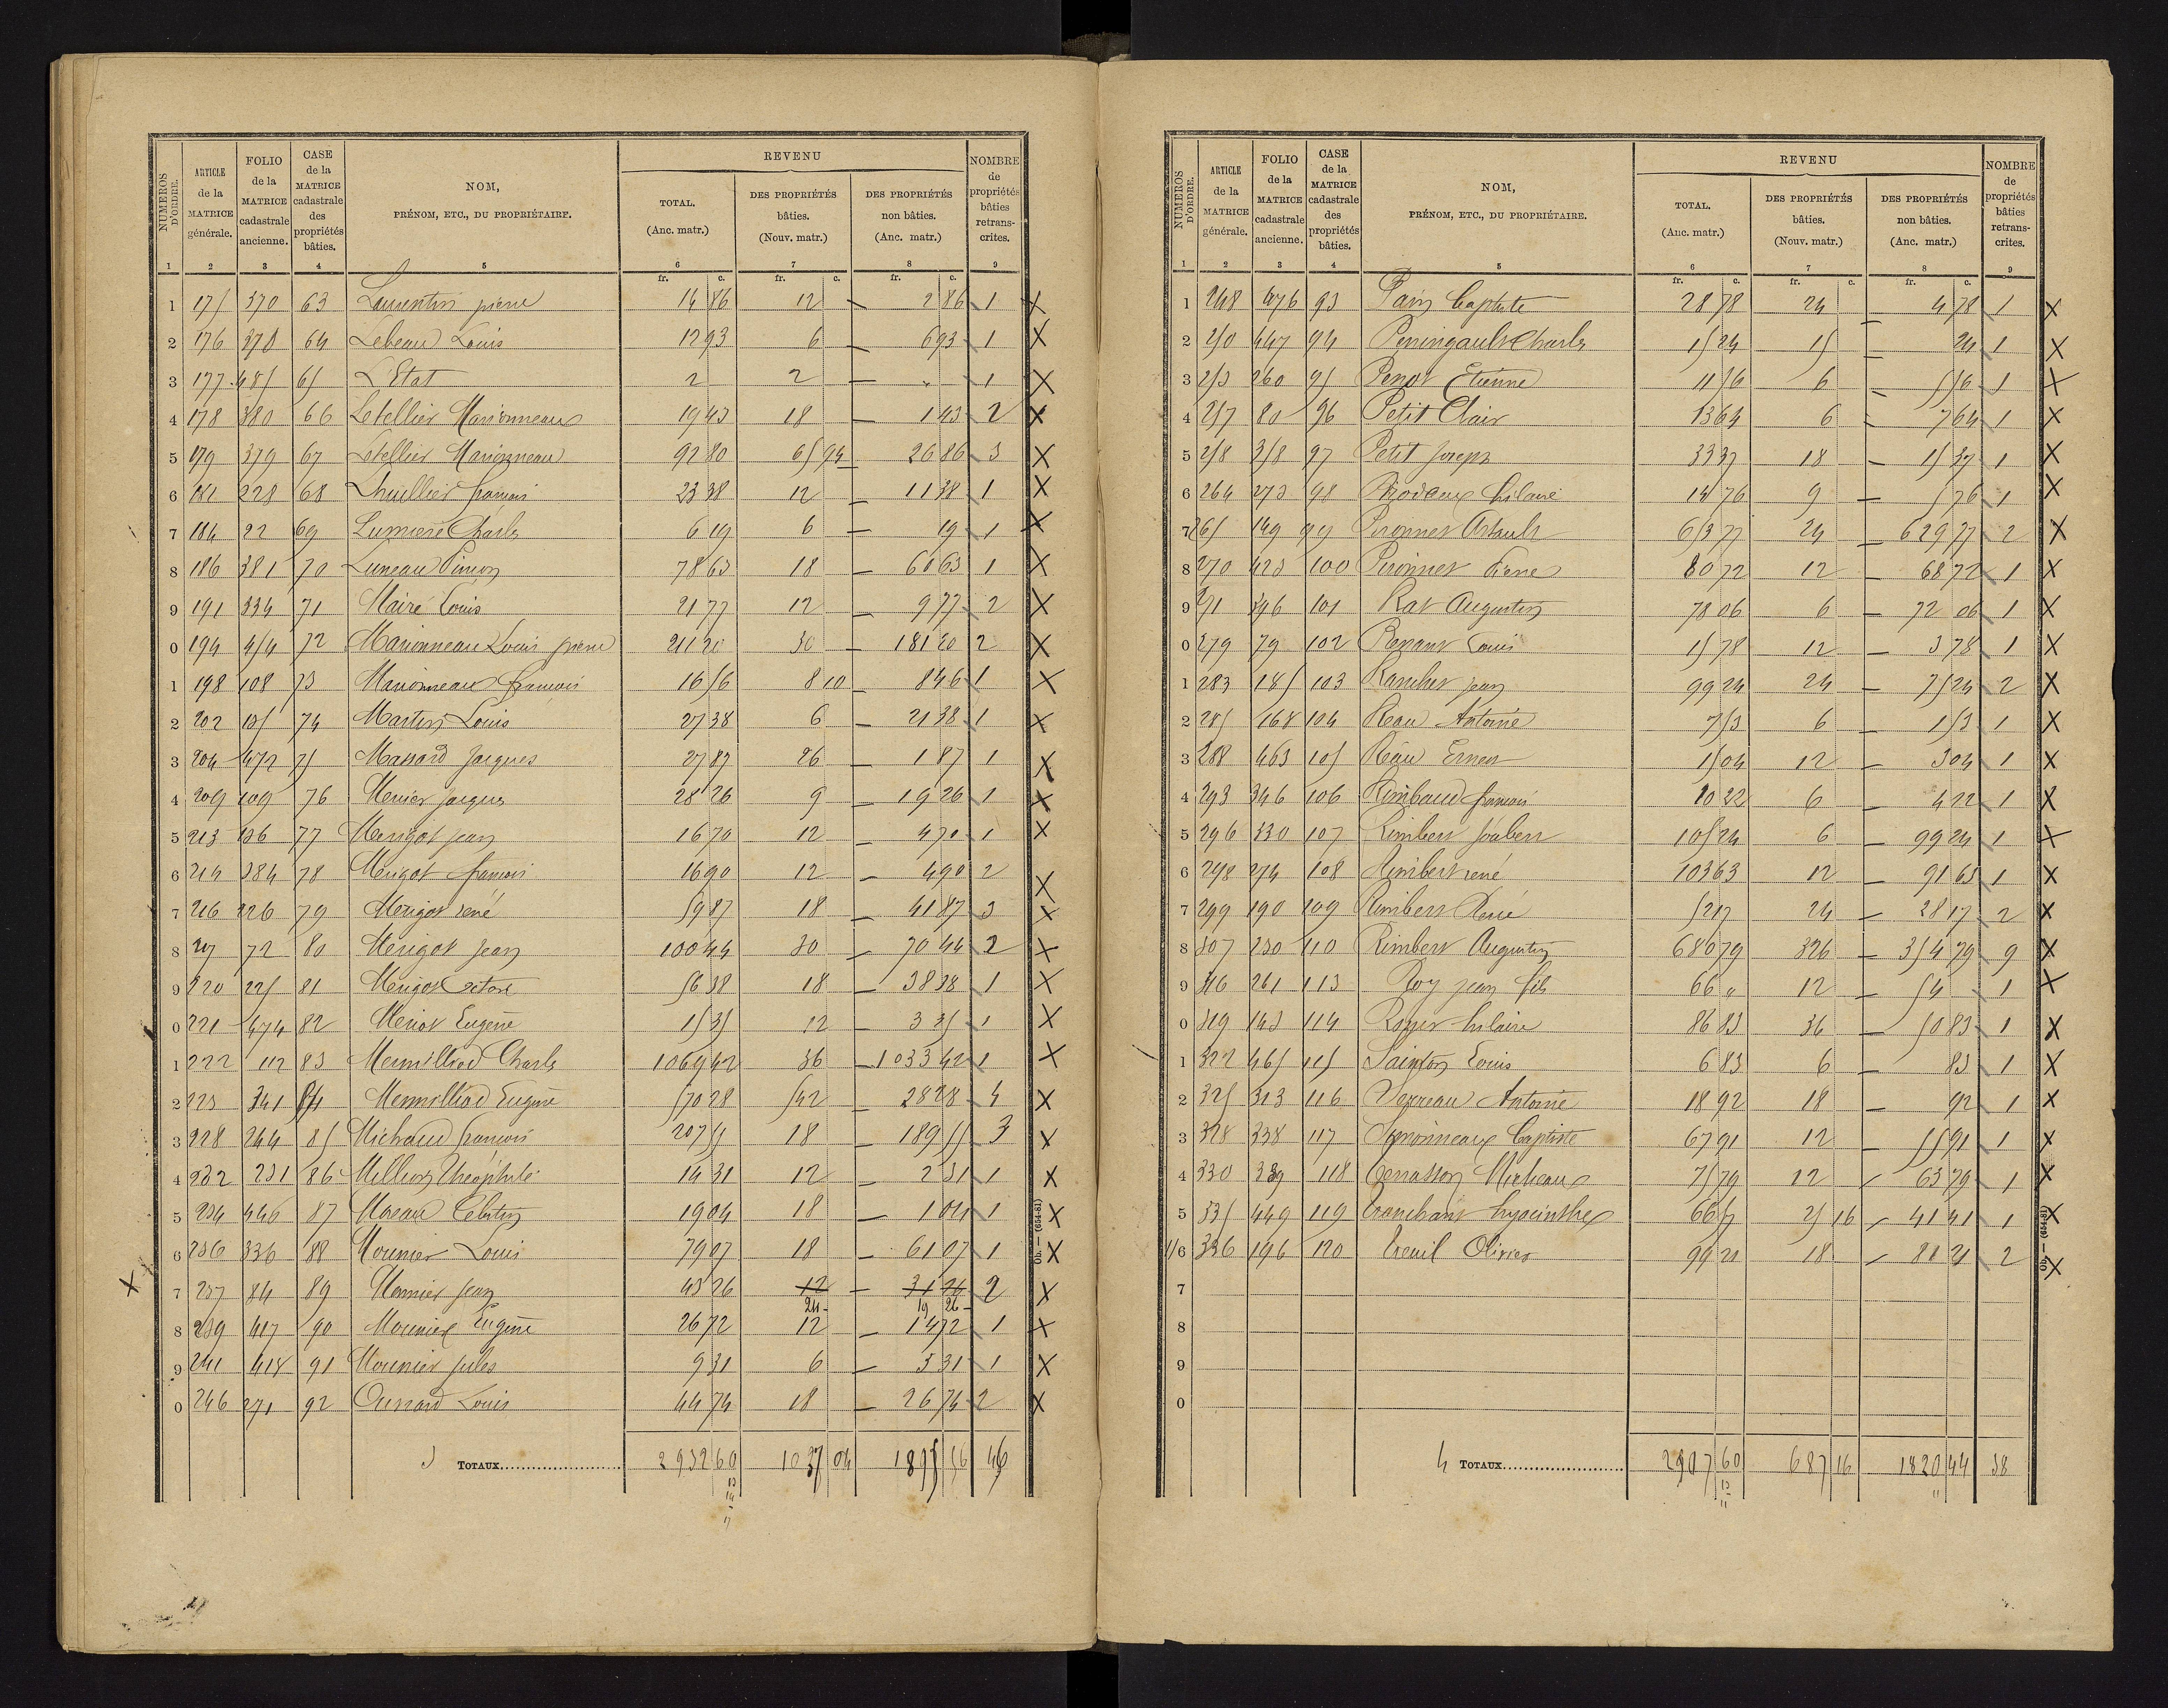 NUMÉROS D'ORDRE. | ARTICLE de la MATRICE générale. | FOLIO de la MATRICE cadastrale ancienne. | CASE de la MATRICE cadastrale des propriétés bâties. | NOM, PRÉNOM, ETC., DU PROPRIÉTAIRE. | REVENU | NOMBRE de propriétés bâties retranscrites.
TOTAL. (Anc. matr.) | DES PROPRIÉTÉS bâties. (Nouv. matr.) | DES PROPRIÉTÉS non bâties. (Anc. matr.)
1 2 3 4 5 6 7 8 9
fr. c. fr. c. fr. c.
1 175 370 63 Laurentin pierre 14 86 12 — 2 86 1 X
2 176 378 64 Lebeau Louis 12 93 6 — 6 93 1 X
3 177 485 65 L'Etat 2 2 — " 1 X
4 178 380 66 Letellier Marionneau 19 43 18 — 1 43 2 X
5 179 379 67 Letellier Marionneau 92 80 65 94 26 86 3 X
6 181 228 68 Lhuillier françois 23 38 12 — 11 38 1 X
7 184 22 69 Lumiere Charles 6 19 6 — 19 1 X
8 186 381 70 Luneau 78 63 18 — 60 63 1 X
9 191 334 71 Mairé Louis 21 77 12 — 9 77 2 X
0 194 454 72 Marionneau Louis pierre 211 20 30 — 181 20 2 X
1 198 108 73 Marionneau françois 16 56 8 10 8 46 1 X
2 202 105 74 Martin Louis 27 38 6 — 21 38 1 X
3 204 472 75 Massard Jacques 27 87 26 — 1 87 1 X
4 209 109 76 Menier Jacques 28 26 9 — 19 26 1 X
5 213 136 77 Merigot jean 16 70 12 — 4 70 1 X
6 214 384 78 Merigot françois 16 90 12 — 4 90 2 X
7 216 226 79 Merigot rené 59 87 18 — 41 87 3 X
8 217 72 80 Merigot Jean 100 44 30 — 70 44 2 X
9 220 225 81 Merigot 56 38 18 — 38 38 1 X
0 221 474 82 Meriot Eugene 15 35 12 — 3 35 1 X
1 222 112 83 Mermilliod Charles 1069 42 36 — 1033 42 1 X
2 223 341 84 Mermilliod Eugene 570 28 542 — 28 28 4 X
3 228 244 85 Michaud françois 207 55 18 — 189 55 3 X
4 232 231 86 Million Théophile 14 31 12 — 2 31 1 X
5 234 446 87 Moreau Celestin 19 04 18 — 1 04 1 X
6 236 336 88 Mounier Louis 79 07 18 — 61 07 1 X
X 7 237 84 89 Mounier Jean 43 26 12 — 31 26 2 X
24 — 19 26
8 239 417 90 Mounier Eugene 26 72 12 — 14 72 1 X
9 241 418 91 Mounier jules 9 31 6 — 3 31 1 X
0 246 271 92 Oussard Louis 44 74 18 — 26 74 2 X
3 TOTAUX 2932 60 1037 04 1895 56 46
Ob. — (654-81)
NUMÉROS D'ORDRE. | ARTICLE de la MATRICE générale. | FOLIO de la MATRICE cadastrale ancienne. | CASE de la MATRICE cadastrale des propriétés bâties. | NOM, PRÉNOM, ETC., DU PROPRIÉTAIRE. | REVENU | NOMBRE de propriétés bâties retranscrites.
TOTAL. (Anc. matr.) | DES PROPRIÉTÉS bâties. (Nouv. matr.) | DES PROPRIÉTÉS non bâties. (Anc. matr.)
1 2 3 4 5 6 7 8 9
fr. c. fr. c. fr. c.
1 248 476 93 Pain Baptiste 28 78 24 — 4 78 1 X
2 250 447 94 Peningault Charles 15 24 15 — 24 1 X
3 253 260 95 Penot Etienne 11 56 6 — 5 56 1 X
4 257 80 96 Petit Clair 13 64 6 — 7 64 1 X
5 258 258 97 Petit Joseph 33 37 18 — 15 37 1 X
6 264 273 98 hilaire 14 76 9 — 5 76 1 X
7 265 149 99 Pironnet Arsault 653 77 24 — 629 77 2 X
8 270 423 100 Pironnet Pierre 80 72 12 — 68 72 1 X
9 271 396 101 Rat Augustin 78 06 6 — 72 06 1 X
0 279 79 102 Renaut Louis 15 78 12 — 3 78 1 X
1 283 185 103 Rancher jean 99 24 24 — 75 24 2 X
2 285 168 104 Reau Antoine 7 53 6 — 1 53 1 X
3 288 463 105 Reau Ernest 15 04 12 — 3 04 1 X
4 293 346 106 Rimbaud françois 10 22 6 — 4 22 1 X
5 296 330 107 Rimbert Joubert 105 24 6 — 99 24 1 X
6 298 274 108 Rimbert rené 103 63 12 — 91 63 1 X
7 299 190 109 Rimbert René 52 17 24 — 28 17 2 X
8 307 230 110 Rimbert Augustin 680 79 326 — 354 79 9 X
9 316 261 113 Roy jean fils 66 " 12 — 54 1 X
0 319 143 114 Royer hilaire 86 83 36 — 50 83 1 X
1 322 465 115 Sainton Louis 6 83 6 — 83 1 X
2 325 313 116 Serreau Antoine 18 92 18 — 92 1 X
3 328 338 117 Simonneau Baptiste 67 91 12 — 55 91 1 X
4 330 339 118 Terrasson Micheau 75 79 12 — 63 79 1 X
5 335 449 119 Tranchant hyacinthe 66 57 25 16 41 41 1 X
6 336 196 120 Treuil Olivier 99 21 18 — 81 21 2 X
7
8
9
0
4 TOTAUX 2507 60 687 16 1820 44 38
Ob. — (654-81)